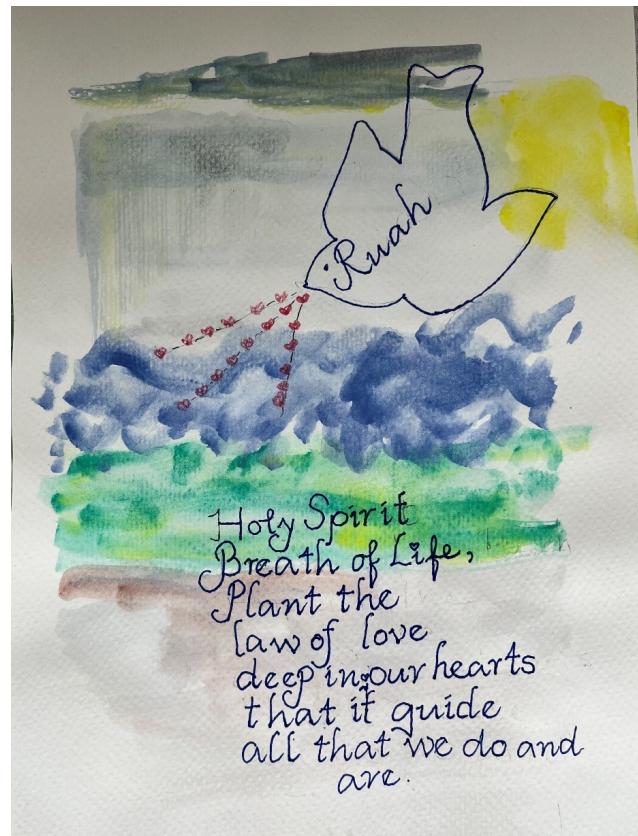 Ruah
Holy Spirit
Breath of Life,
Plant the
law of love
deep in our hearts
that it guide
all that we do and
are.